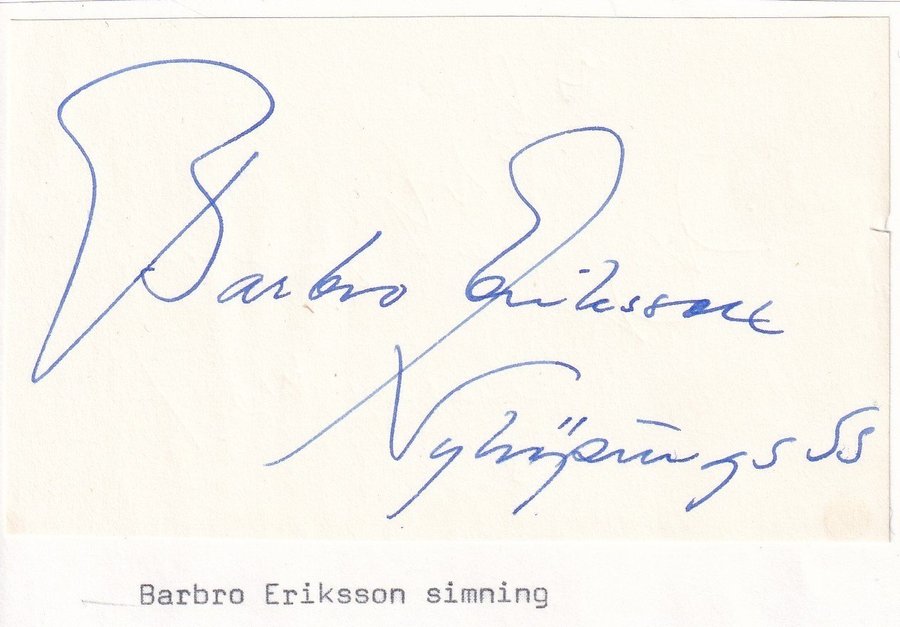 Barbro Eriksson
Nyköpings SS
Barbro Eriksson simning